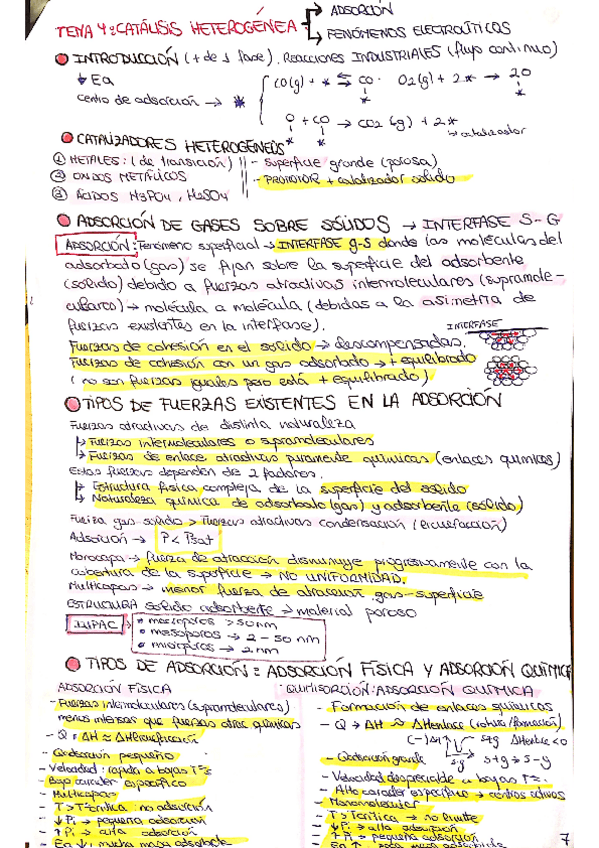 TEMA 4: CATÁLISIS HETEROGÉNEA
→ ADSORCIÓN
→ FENÓMENOS ELECTROLÍTICOS
INTRODUCCIÓN (+ de 1 fase). REACCIONES INDUSTRIALES (flujo continuo)
↓ Ea
centro de adsorción → *
CO(g) + * ⇆ CO-* O2(g) + 2* → 2O-*
O-* + CO-* → CO2(g) + 2*
→ catalizador
CATALIZADORES HETEROGÉNEOS
① METALES: (de transición)
② ÓXIDOS METÁLICOS
③ ÁCIDOS H3PO4, H2SO4
- Superficie grande (porosa)
- PROMOTOR + catalizador sólido
ADSORCIÓN DE GASES SOBRE SÓLIDOS → INTERFASE S-G
ADSORCIÓN: Fenómeno superficial → INTERFASE g-s donde las moléculas del
adsorbato (gas) se fijan sobre la superficie del adsorbente
(sólido) debido a fuerzas atractivas intermoleculares (supramole-
culares) → molécula a molécula (debidas a la asimetría de
fuerzas existentes en la interfase).
INTERFASE
Fuerzas de cohesión en el sólido → descompensadas.
Fuerzas de cohesión con un gas adsorbato → + equilibrado
(no son fuerzas iguales pero está + equilibrado)
TIPOS DE FUERZAS EXISTENTES EN LA ADSORCIÓN
Fuerzas atractivas de distinta naturaleza
↳ Fuerzas intermoleculares o supramoleculares
↳ Fuerzas de enlace atractivas puramente químicas (enlaces químicos)
Estas fuerzas dependen de 2 factores:
↳ Estructura física compleja de la superficie del sólido
↳ Naturaleza química de adsorbato (gas) y adsorbente (sólido)
Fuerza gas sólido > Fuerzas atractivas condensación (licuefacción)
Adsorción → P < Psat
Monocapa → fuerza de atracción disminuye progresivamente con la
cobertura de la superficie → NO UNIFORMIDAD.
Multicapas → menor fuerza de atracción gas-superficie
ESTRUCTURA sólido adsorbente → material poroso
IUPAC
• macroporos > 50 nm
• mesoporos → 2 - 50 nm
• microporos → 2 nm
TIPOS DE ADSORCIÓN: ADSORCIÓN FÍSICA Y ADSORCIÓN QUÍMICA
ADSORCIÓN FÍSICA
- Fuerzas intermoleculares (supramoleculares)
menos intensas que fuerzas atrac. químicas
- Q = ΔH ≈ ΔHlicuefacción
- Qadsorción pequeño
- Velocidad: rápida a bajas Tªs
- Bajo carácter específico
- Multicapas
- T > Tcrítica: no adsorción
- ↓ Pi → pequeña adsorción
- ↑ Pi → alta adsorción
- Ea ↓: mucha masa adsorbato
QUIMISORCIÓN: ADSORCIÓN QUÍMICA
- Formación de enlaces químicos
- Q → ΔH ≈ ΔHenlace (rotura/formación)
(-)ΔH s+g ΔHenlace < 0
s-g s+g → s-g
- Qadsorción grande
- Velocidad despreciable a bajas Tªs.
- Alto carácter específico → centros activos
- Monomolecular
- T > Tcrítica → no límite
- ↓ Pi → alta adsorción
- ↑ Pi → pequeña adsorción
- Ea ↑: poca masa adsorbida
7